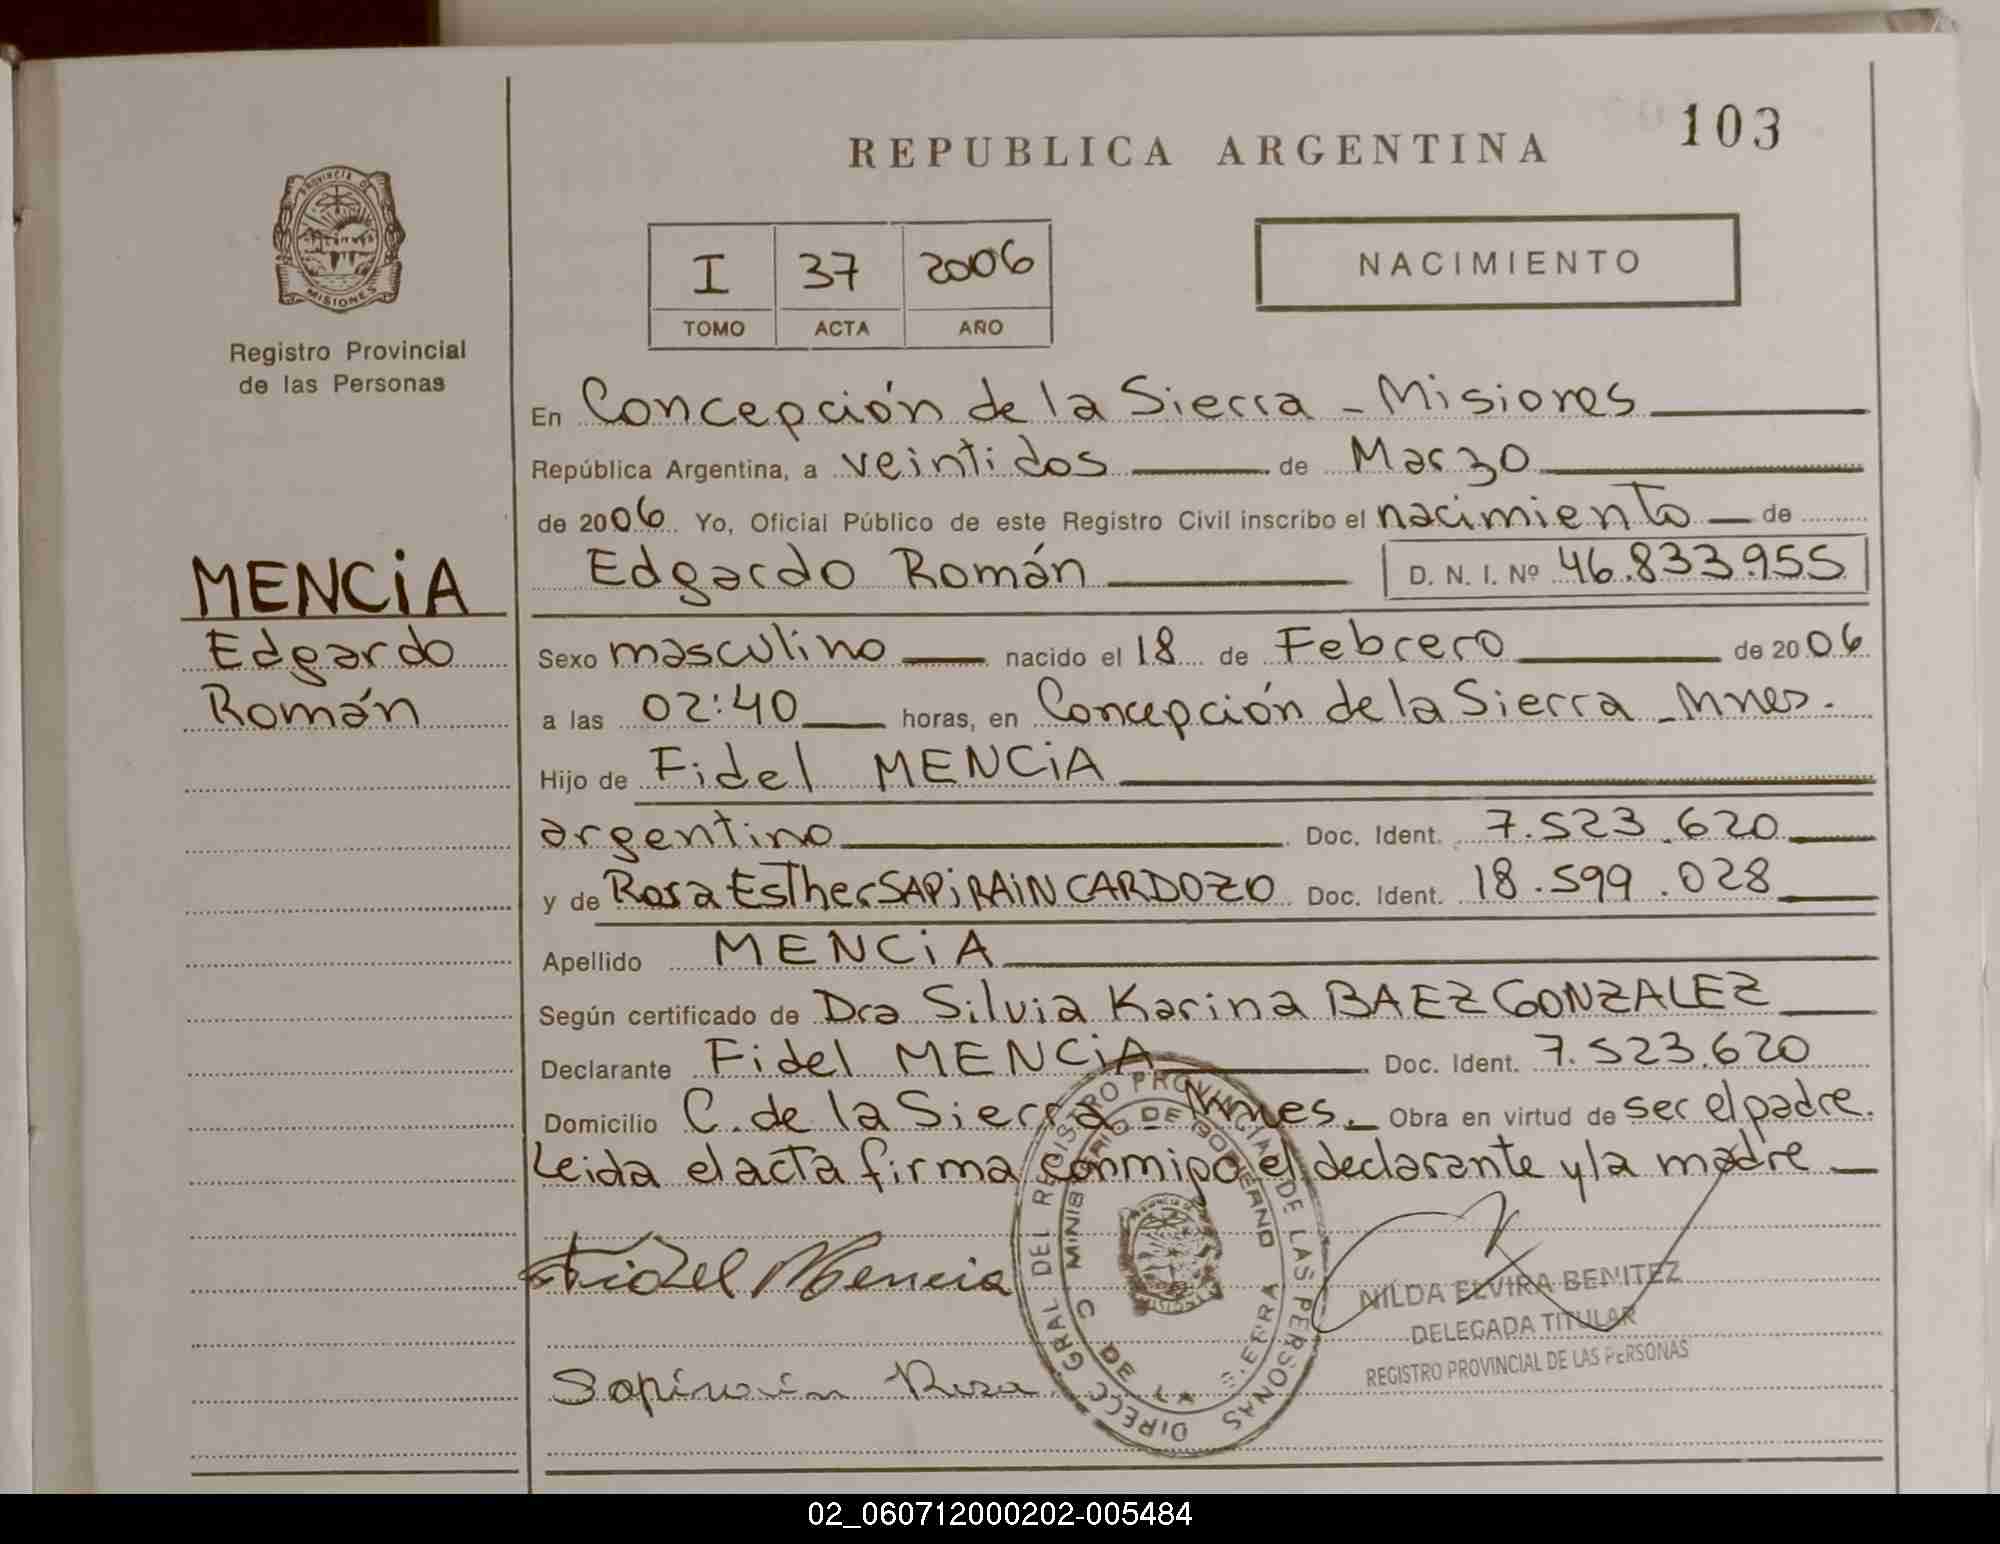 103
REPUBLICA ARGENTINA
PROVINCIA DE
MISIONES
Registro Provincial
de las Personas
I 37 2006
TOMO ACTA AÑO
NACIMIENTO
En Concepción de la Sierra - Misiones
República Argentina, a veintidos de Marzo
de 2006 Yo, Oficial Público de este Registro Civil inscribo el nacimiento de
Edgardo Román D. N. I. Nº 46.833.955
MENCiA
Edgardo
Román
Sexo masculino nacido el 18 de Febrero de 2006
a las 02:40 horas, en Concepción de la Sierra - Mnes.
Hijo de Fidel MENCiA
argentino Doc. Ident. 7.523.620
y de Rosa Esther SAPiRAiN CARDOZO Doc. Ident. 18.599.028
Apellido MENCiA
Según certificado de Dra Silvia Karina BAEZ GONZALEZ
Declarante Fidel MENCiA Doc. Ident. 7.523.620
Domicilio C. de la Sierra Mnes. Obra en virtud de ser el padre.
Leida el acta firma conmigo el declarante y la madre
Fidel Mencia
Sapirain Rosa
DIRECC GRAL DEL REGISTRO PROVINCIAL DE LAS PERSONAS
MINISTERIO DE GOBIERNO
C DE LA SIERRA
NILDA ELVIRA BENITEZ
DELEGADA TITULAR
REGISTRO PROVINCIAL DE LAS PERSONAS
02_060712000202-005484